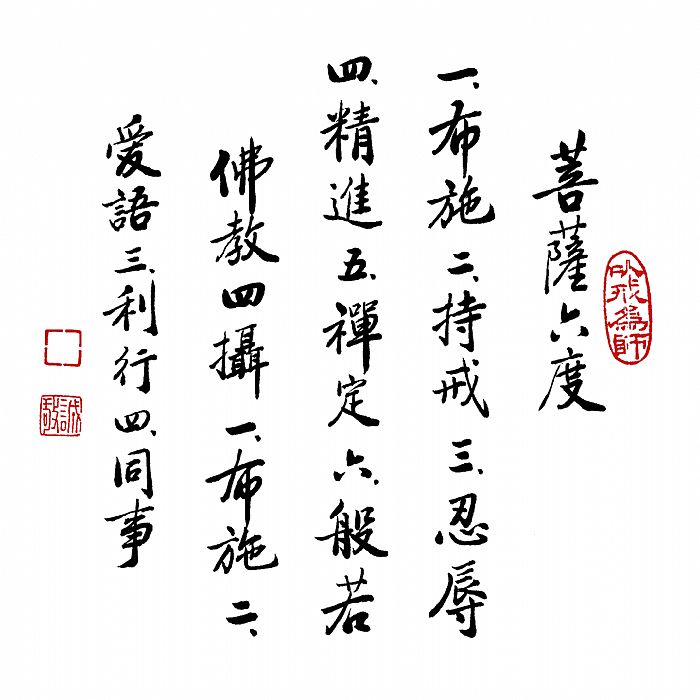 菩薩六度
一、布施二、持戒三、忍辱
四、精進五、禪定六、般若
佛教四攝一、布施二、
愛語三、利行四、同事
以戒為師
誠敬